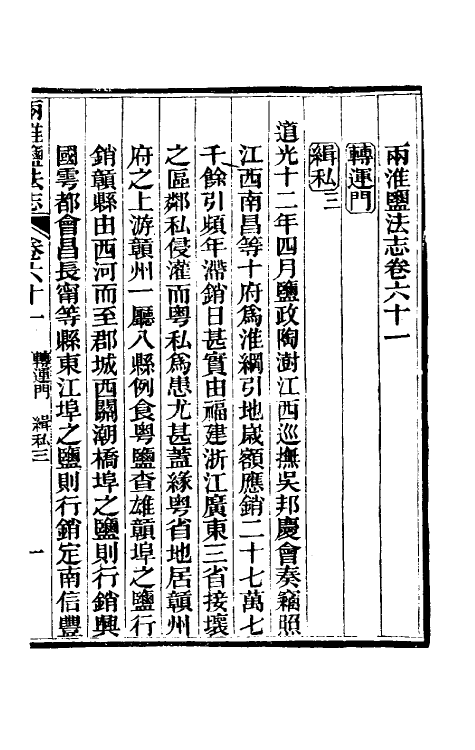 兩淮鹽法志卷六十一
轉運門
緝私三
道光十二年四月鹽政陶澍江西巡撫吳邦慶會奏竊照
江西南昌等十府爲淮綱引地歲額應銷二十七萬七
千餘引頻年滯銷日甚實由福建浙江廣東三省接壤
之區鄰私侵灌而粵私爲患尤甚蓋緣粵省地居贛州
府之上游贛州一廳八縣例食粵鹽查雄贛埠之鹽行
銷贛縣由西河而至郡城西關潮橋埠之鹽則行銷興
國雩都會昌長甯等縣東江埠之鹽則行銷定南信豐
兩淮鹽法志 卷六十一 轉運門 緝私三 一